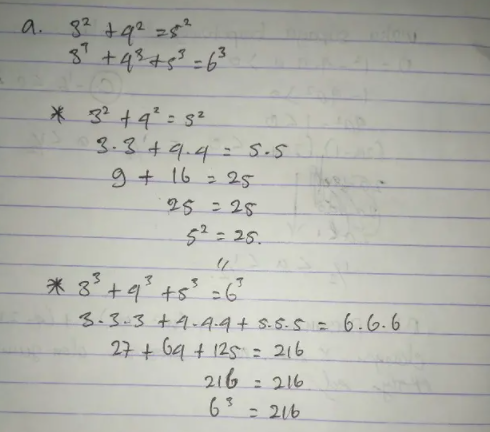 a. 3² + 4² = 5²
3³ + 4³ + 5³ = 6³
* 3² + 4² = 5²
3.3 + 4.4 = 5.5
9 + 16 = 25
25 = 25
5² = 25.
//
* 3³ + 4³ + 5³ = 6³
3.3.3 + 4.4.4 + 5.5.5 = 6.6.6
27 + 64 + 125 = 216
216 = 216
6³ = 216